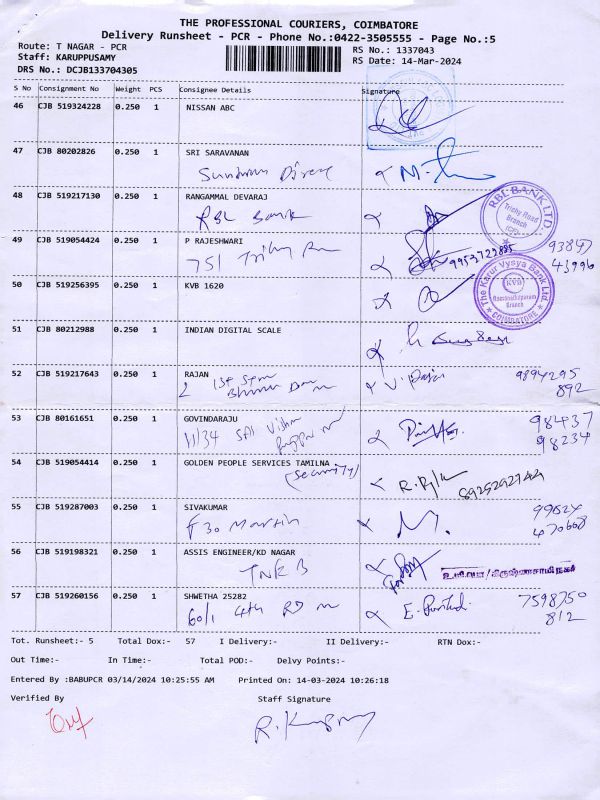 THE PROFESSIONAL COURIERS, COIMBATORE
Delivery Runsheet - PCR - Phone No.:0422-3505555 - Page No.:5
Route: T NAGAR - PCR
RS No.: 1337043
Staff: KARUPPUSAMY
RS Date: 14-Mar-2024
DRS No.: DCJB133704305
S No Consignment No Weight PCS Consignee Details Signature
46 CJB 519324228 0.250 1 NISSAN ABC
47 CJB 80202826 0.250 1 SRI SARAVANAN
48 CJB 519217130 0.250 1 RANGAMMAL DEVARAJ
RBL Bank
RBL BANK LTD
Trichy Road
Branch
49 CJB 519054424 0.250 1 P RAJESHWARI
751 Trichy
93847
43996
50 CJB 519256395 0.250 1 KVB 1620
The Karur Vysya Bank Ltd.
KVB
Branch
COIMBATORE
51 CJB 80212988 0.250 1 INDIAN DIGITAL SCALE
52 CJB 519217643 0.250 1 RAJAN
9894295
892
53 CJB 80161651 0.250 1 GOVINDARAJU
11/34
98437
98234
54 CJB 519054414 0.250 1 GOLDEN PEOPLE SERVICES TAMILNA
(Security)
55 CJB 519287003 0.250 1 SIVAKUMAR
F30 Martin
470668
56 CJB 519198321 0.250 1 ASSIS ENGINEER/KD NAGAR
TNEB
57 CJB 519260156 0.250 1 SHWETHA 25282
60/1 4th RD
7598750
812
Tot. Runsheet:- 5 Total Dox:- 57 I Delivery:- II Delivery:- RTN Dox:-
Out Time:- In Time:- Total POD:- Delvy Points:-
Entered By :BABUPCR 03/14/2024 10:25:55 AM Printed On: 14-03-2024 10:26:18
Verified By Staff Signature